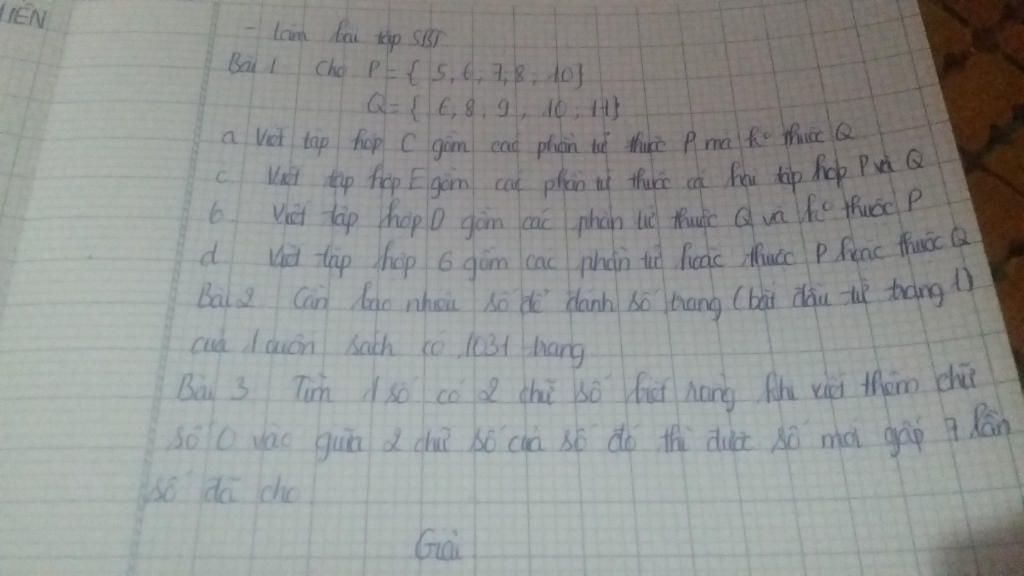 IÊN
- Làm bài tập SBT
Bài 1 Cho P = { 5, 6, 7, 8, 10}
Q = { 6, 8, 9, 10, 11}
a Viết tập hợp C gồm các phần tử thuộc P mà k° thuộc Q
c Viết tập hợp E gồm các phần tử thuộc cả hai tập hợp P và Q
b Viết tập hợp D gồm các phần tử thuộc Q và k° thuộc P
d Viết tập hợp G gồm các phần tử hoặc thuộc P hoặc thuộc Q
Bài 2 Cần bao nhiêu số để đánh số trang (bắt đầu từ trang 1)
của 1 cuốn sách có 1031 trang
Bài 3 Tìm 1 số có 2 chữ số biết rằng khi viết thêm chữ
số 0 vào giữa 2 chữ số của số đó thì được số mới gấp 7 lần
số đã cho
Giải